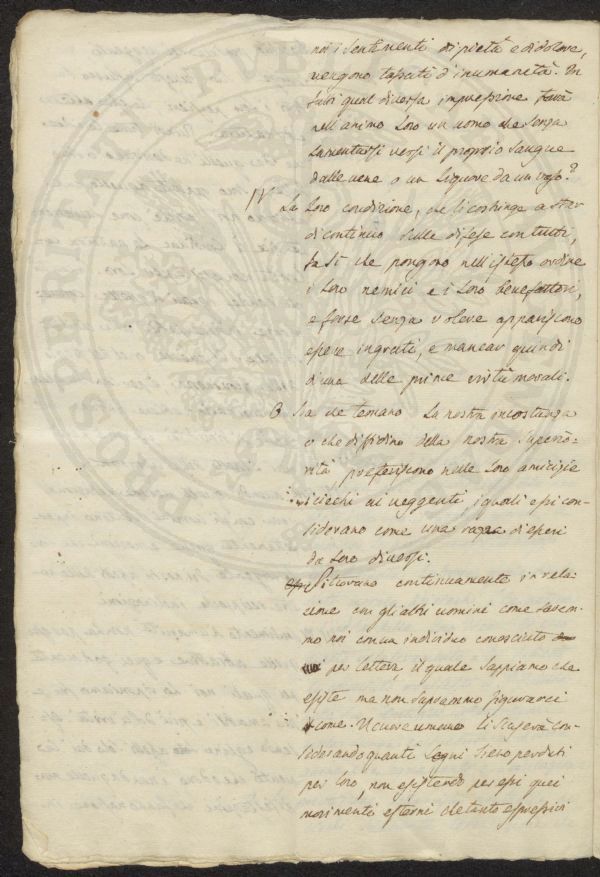 noi i sentimenti di pietà e di dolore,
vengono tassati d'inumanità. In
fatti qual diversa impressione farà
nell'animo loro un uomo che senza
lamentarsi versi il proprio sangue
dalle vene o un liquore da un vaso?
IV La loro condizione, che li costringe a star
di continuo sulle difese con tutti,
fa sì che pongono nell'istesso ordine
i loro nemici e i loro benefattori,
e forse senza volere appariscono
essere ingrati, e mancar quindi
d'una delle prime virtù morali.
Sia che temano la nostra incostanza
o che diffidino della nostra superio-
rità preferiscono nelle loro amicizie
i ciechi ai veggenti, i quali essi con-
siderano come una razza di esseri
da loro diversi.
Si trovano continuamente in rela-
zione con gli altri uomini come sarem-
mo noi con un individuo conosciuto
per lettera, il quale sappiamo che
esiste ma non sapremmo figurarci
come. Il cuore umano li scuserà con-
siderando quanti segni sieno perduti
per loro, non esistendo per essi quei
movimenti esterni che tanto espressivi
PROSPERITATI PVBLIC